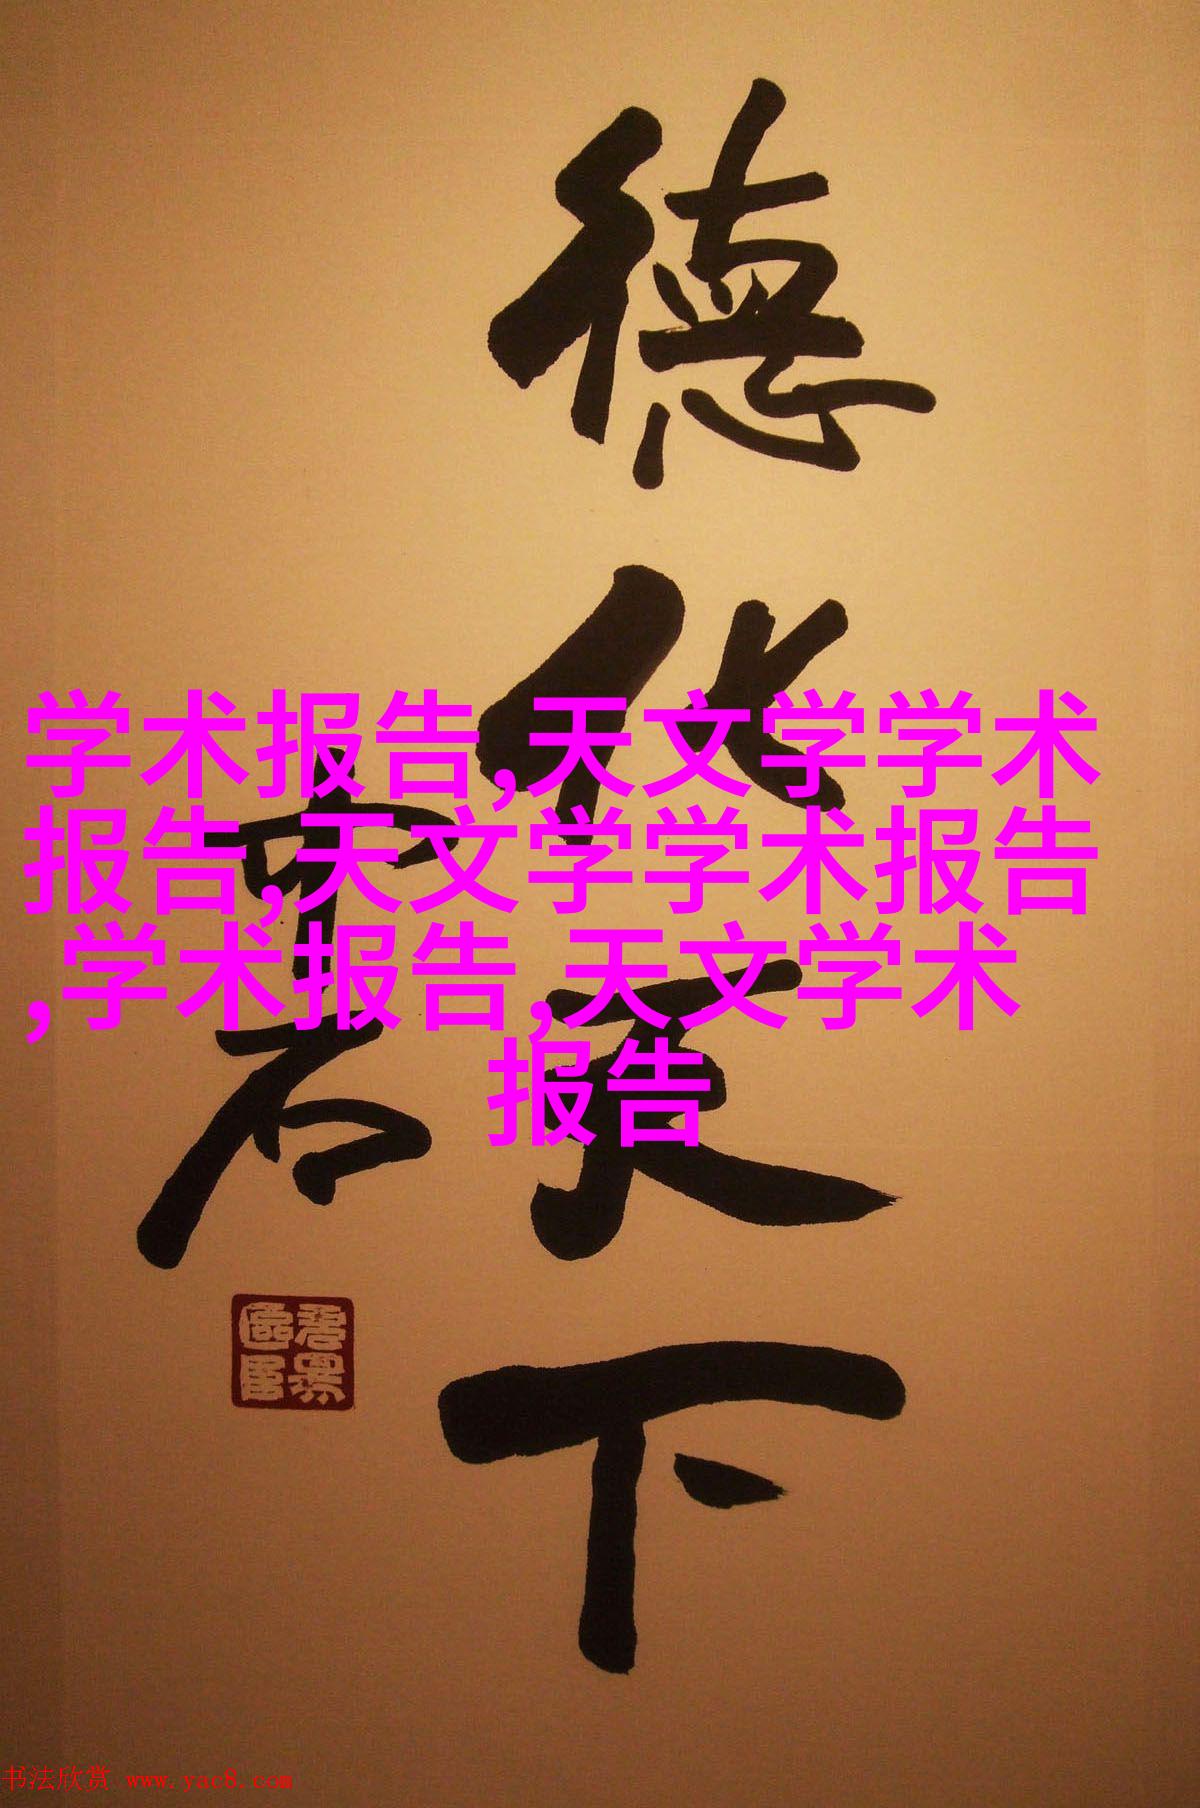 德化天下
中石
学术报告,天文学学术
报告,天文学学术报告
,学术报告,天文学术
报告
书法欣赏 www.yac8.com